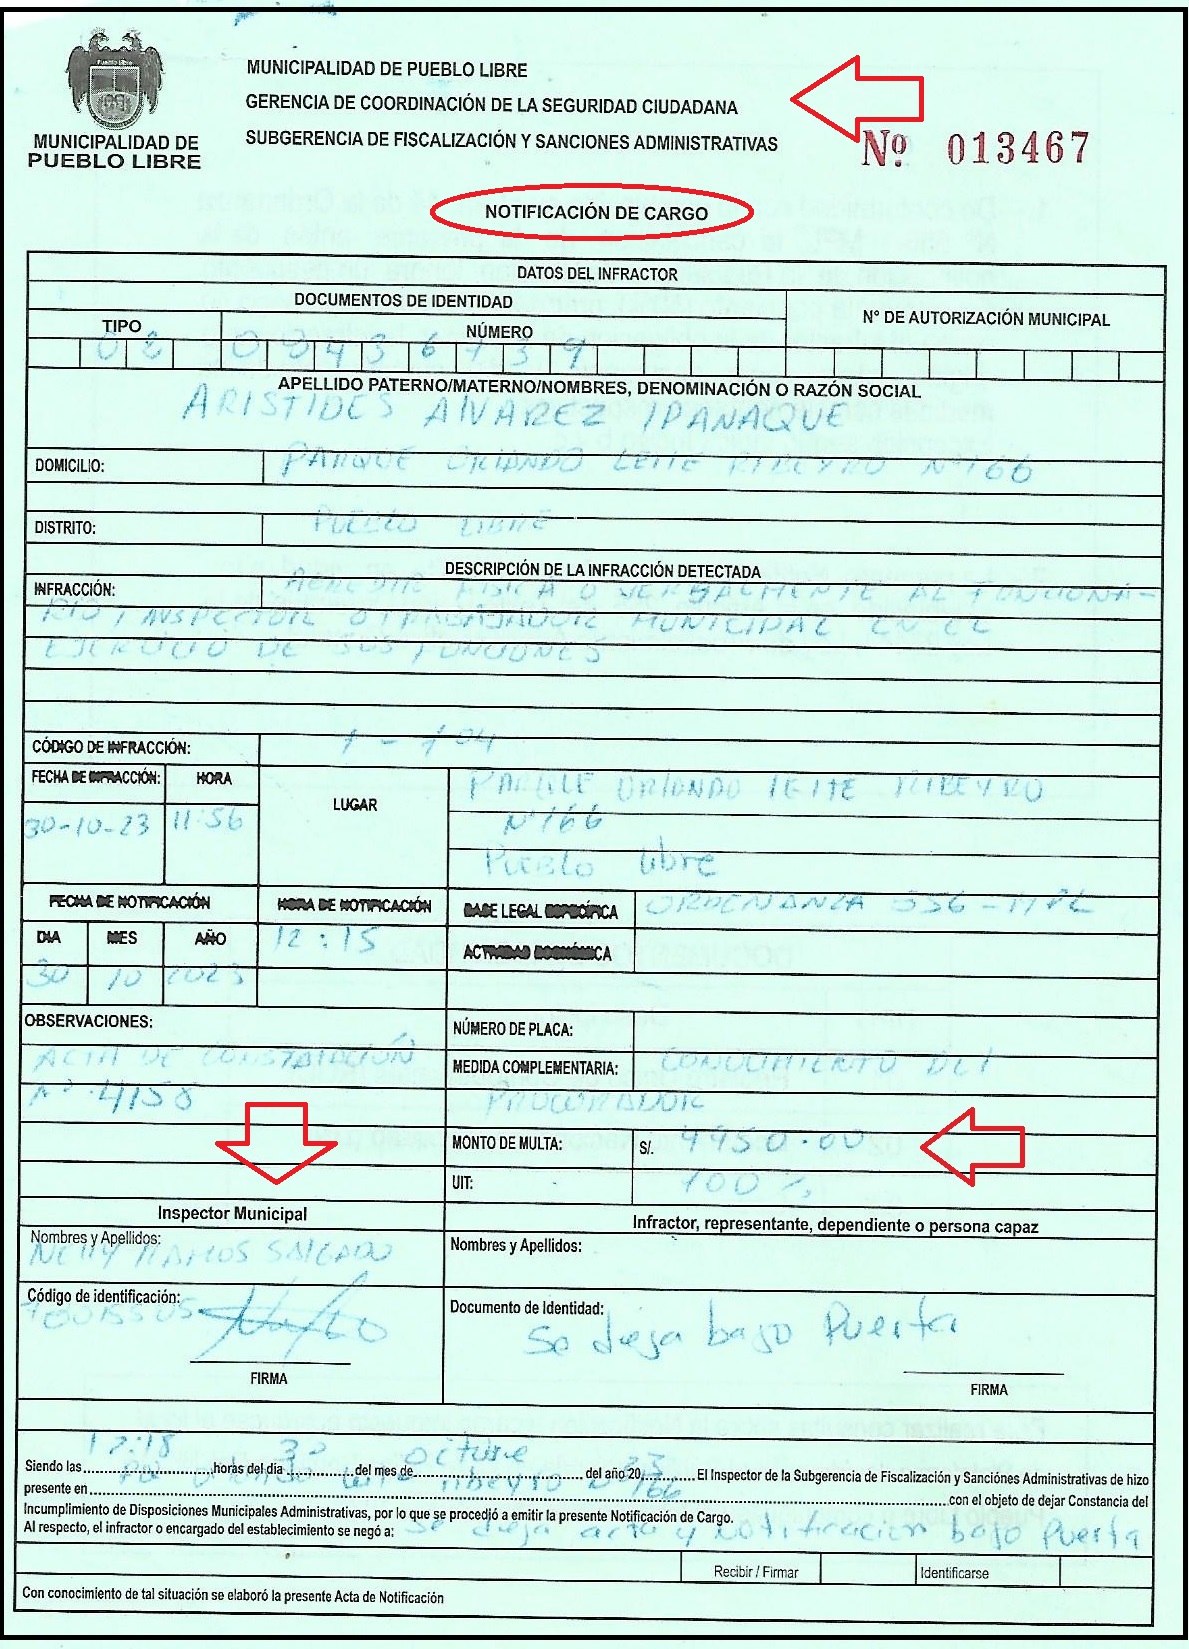 Pueblo Libre
MUNICIPALIDAD DE
PUEBLO LIBRE
MUNICIPALIDAD DE PUEBLO LIBRE
GERENCIA DE COORDINACIÓN DE LA SEGURIDAD CIUDADANA
SUBGERENCIA DE FISCALIZACIÓN Y SANCIONES ADMINISTRATIVAS
Nº 013467
NOTIFICACIÓN DE CARGO
DATOS DEL INFRACTOR
DOCUMENTOS DE IDENTIDAD
Nº DE AUTORIZACIÓN MUNICIPAL
TIPO NÚMERO
02
APELLIDO PATERNO/MATERNO/NOMBRES, DENOMINACIÓN O RAZÓN SOCIAL
ARISTIDES ALVAREZ IPANAQUE
DOMICILIO: PARQUE ORLANDO LEITE RIBEYRO Nº 166
DISTRITO: PUEBLO LIBRE
DESCRIPCIÓN DE LA INFRACCIÓN DETECTADA
INFRACCIÓN: FISICA O VERBALMENTE AL FUNCIONA-
RIO, INSPECTOR O TRABAJADOR MUNICIPAL EN EL
EJERCICIO DE SUS FUNCIONES
CÓDIGO DE INFRACCIÓN: 1-104
FECHA DE INFRACCIÓN: HORA LUGAR
30-10-23 11:56
PARQUE ORLANDO LEITE RIBEYRO
Nº 166
PUEBLO libre
FECHA DE NOTIFICACIÓN HORA DE NOTIFICACIÓN
DIA MES AÑO 12:15
30 10 2023
BASE LEGAL ESPECÍFICA ORDENANZA 556-MPL
ACTIVIDAD ECONÓMICA
OBSERVACIONES:
ACTA DE CONSTATACIÓN
Nº 4158
NÚMERO DE PLACA:
MEDIDA COMPLEMENTARIA: CONOCIMIENTO DEL
PROCURADOR
MONTO DE MULTA: S/. 4950.00
UIT: 100%
Inspector Municipal
Nombres y Apellidos:
NELLY RAMOS SALGADO
Código de identificación:
FIRMA
Infractor, representante, dependiente o persona capaz
Nombres y Apellidos:
Documento de Identidad:
Se deja bajo Puerta
FIRMA
Siendo las 12:18 horas del día 30 del mes de Octubre del año 2023 El Inspector de la Subgerencia de Fiscalización y Sanciónes Administrativas de hizo
presente en Orlando Leite ribeyro Nº 166 con el objeto de dejar Constancia del
Incumplimiento de Disposiciones Municipales Administrativas, por lo que se procedió a emitir la presente Notificación de Cargo.
Al respecto, el infractor o encargado del establecimiento se negó a: se deja acta y notificacion bajo Puerta
Recibir / Firmar Identificarse
Con conocimiento de tal situación se elaboró la presente Acta de Notificación